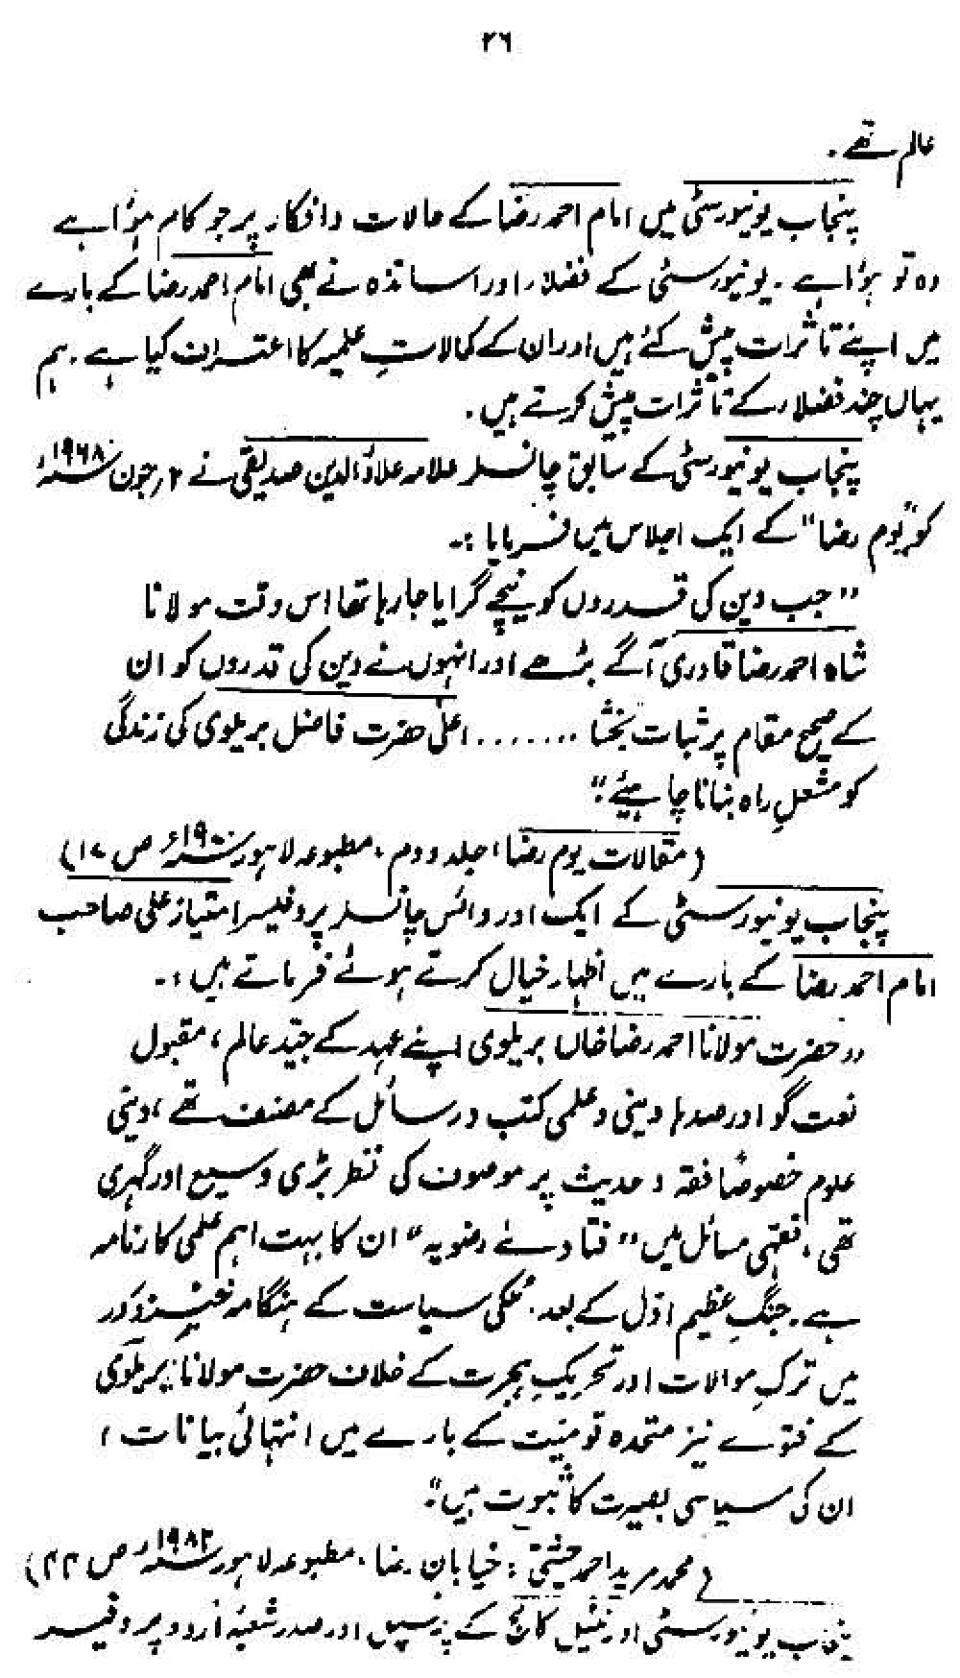 ۲۶
عالم تھے۔
پنجاب یونیورسٹی میں امام احمد رضا کے حالات وافکار پر جو کام ہؤا ہے
وہ تو ہؤا ہے۔ یونیورسٹی کے فضلاء اور اساتذہ نے بھی امام احمد رضا کے بارے
میں اپنے تأثرات پیش کئے ہیں اور ان کے کمالاتِ علمیہ کا اعتراف کیا ہے۔ ہم
یہاں چند فضلاء کے تأثرات پیش کرتے ہیں۔
پنجاب یونیورسٹی کے سابق چانسلر علامہ علاؤالدین صدیقی نے ۲؍جون ۱۹۶۸ء
کو "یوم رضا" کے ایک اجلاس میں فرمایا :۔
"جب دین کی قدروں کو نیچے گرایا جا رہا تھا اس وقت مولانا
شاہ احمد رضا قادری آگے بڑھے اور انہوں نے دین کی قدروں کو ان
کے صحیح مقام پر ثبات بخشا ....... اعلیٰ حضرت فاضل بریلوی کی زندگی
کو مشعلِ راہ بنانا چاہیئے"
(مقالات یوم رضا، جلد دوم، مطبوعہ لاہور ۱۹۷۰ء ص ۱۷)
پنجاب یونیورسٹی کے ایک اور وائس چانسلر پروفیسر امتیاز علی صاحب
امام احمد رضا کے بارے میں اظہار خیال کرتے ہوئے فرماتے ہیں :۔
"حضرت مولانا احمد رضا خاں بریلوی اپنے عہد کے جیّد عالم، مقبول
نعت گو اور صدہا دینی و علمی کتب و رسائل کے مصنف تھے، دینی
علوم خصوصًا فقہ و حدیث پر موصوف کی نظر بڑی وسیع اور گہری
تھی، فقہی مسائل میں "فتاوٰے رضویہ" ان کا بہت اہم علمی کارنامہ
ہے۔ جنگِ عظیم اوّل کے بعد، مُلکی سیاست کے ہنگامہ خیز دَور
میں ترکِ موالات اور تحریکِ ہجرت کے خلاف حضرت مولانا بریلوی
کے فتوے نیز متحدہ قومیّت کے بارے میں انتہائی بیانات،
ان کی سیاسی بصیرت کا ثبوت ہیں"۔
(محمد مرید احمد چشتی : خیابان رضا، مطبوعہ لاہور ۱۹۸۲ء ص ۴۲)
پنجاب یونیورسٹی اورینٹیل کالج کے پرنسپل اور صدر شعبۂ اُردو پروفیسر